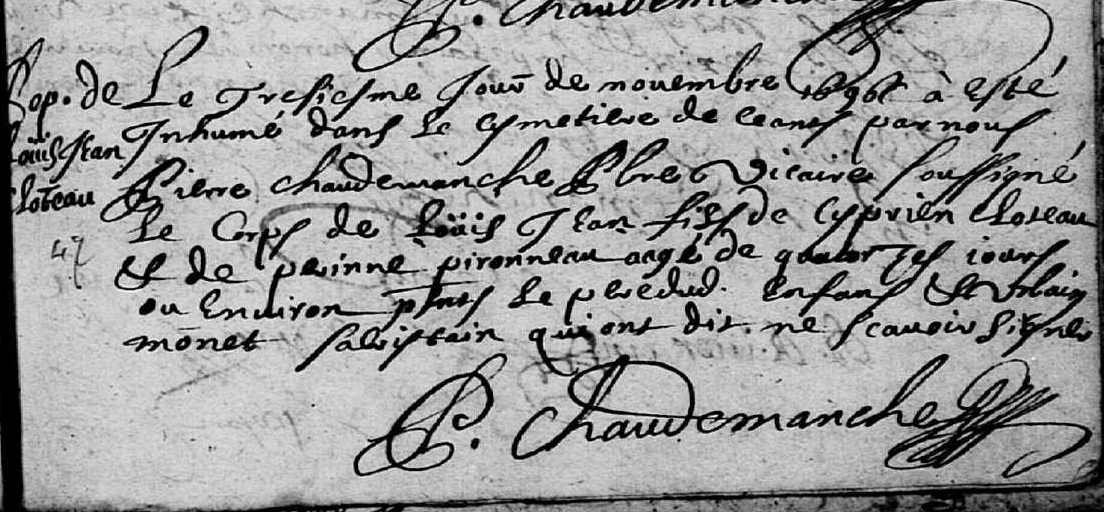 P. Chaudemanche
Sep. de
Loüis Jean
Cloteau
47
Le Tresiesme Jour de novembre 1696 à Esté
Inhumé dans le Cymetiere de Ceans par nous
Pierre Chaudemanche Pbre & Vicaire soussigné
Le Corps de Loüis Jean fils de Cyprien Cloteau
& de perinne pironneau aagé de quatorzes iours
ou Environ pnts Le pere dud. Enfans &
monet sacristain qui ont dit ne scavoir signer
P. Chaudemanche